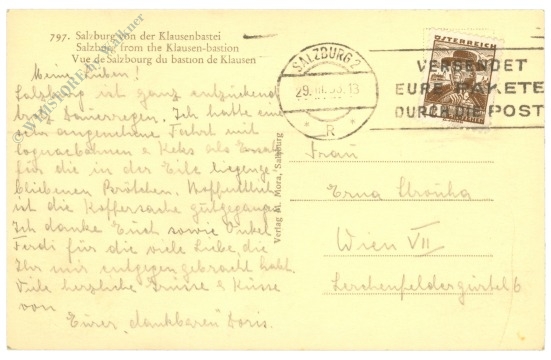 797. Salzburg von der Klausenbastei
Salzburg from the Klausen-bastion
Vue de Salzburg du bastion de Klausen
Meine Lieben!
Salzburg ist ganz entzückend
trotz Dauerregen. Ich hatte eine
sehr angenehme Fahrt mit
Cognacbohnen & Keks als Ersatz
für die in der Eile liegenge-
bliebenen Brötchen. Hoffentlich
ist die Koffersache gutgegangen
Ich danke Euch sowie Onkel
Ferdi für die viele Liebe, die
Ihr mir entgegen gebracht habt.
Viele herzliche Grüsse & Küsse
von
Eurer "dankbaren" Doris.
Verlag M. Mora, Salzburg
SALZBURG 2
29. III. 35. 13
* R *
ÖSTERREICH
VERSENDET
EURE PAKETE
DURCH DIE POST
Frau
Erna Strouha
Wien VII
Lerchenfeldergürtel 6